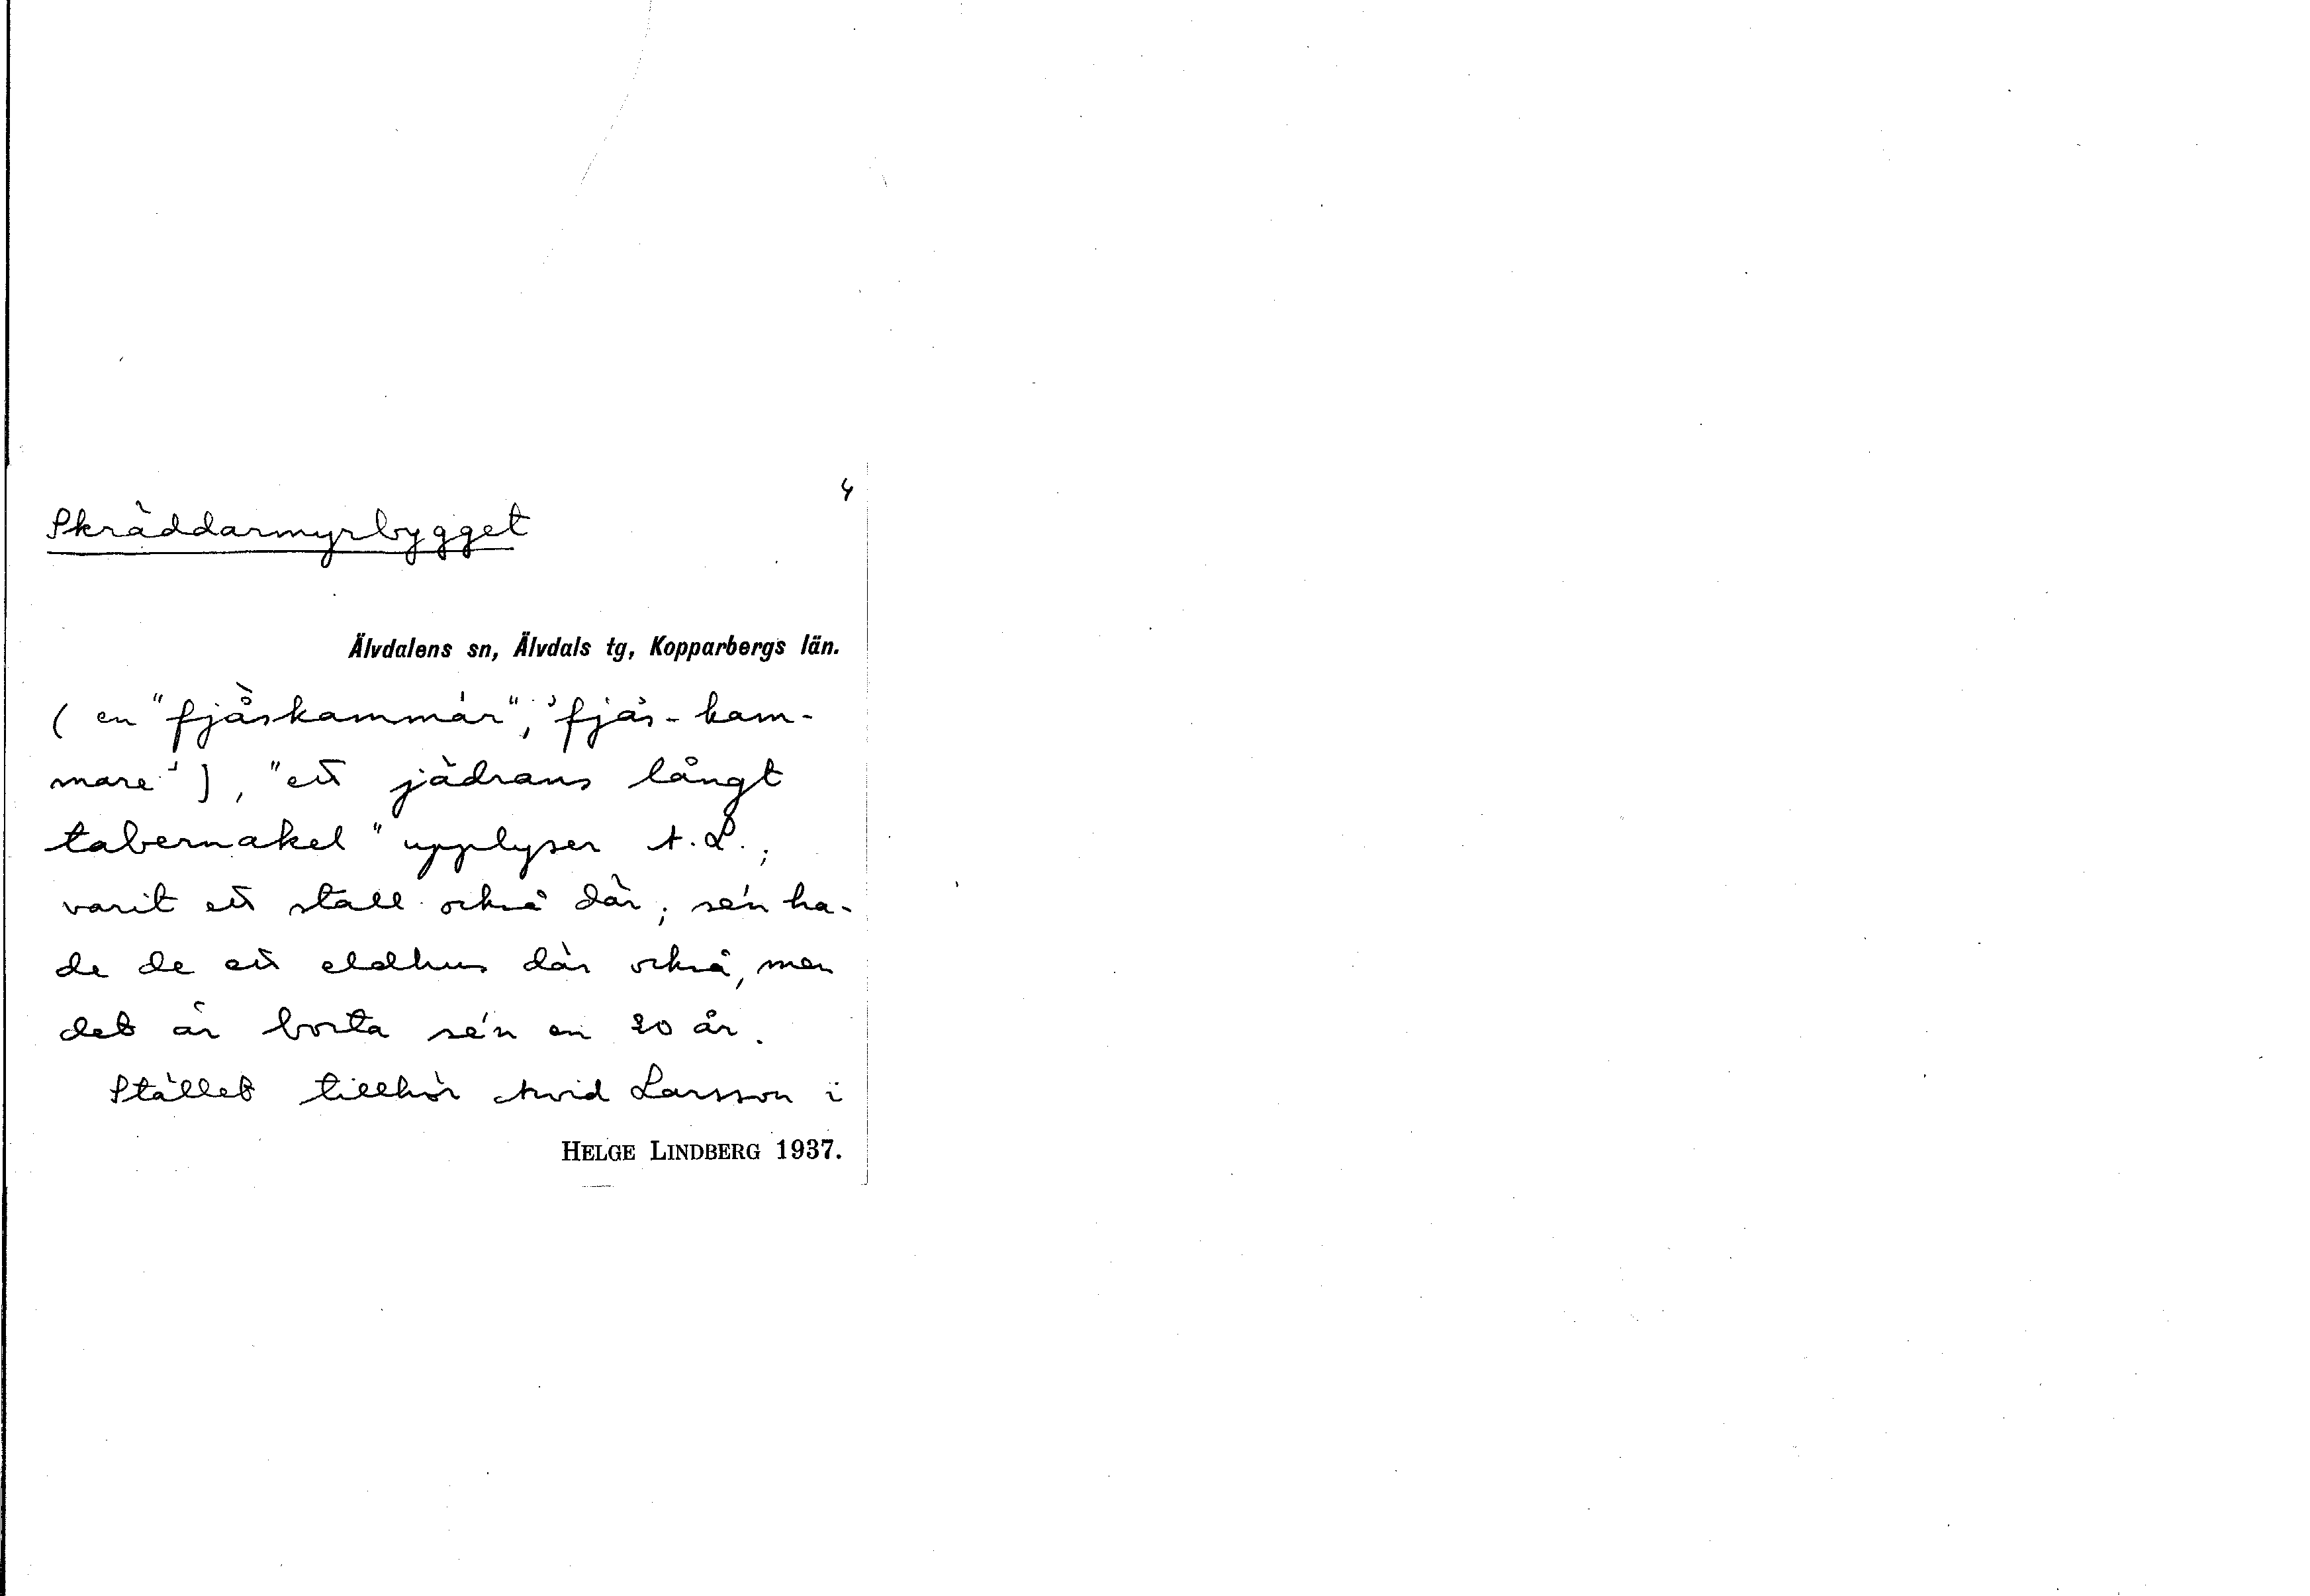 4
Skräddarmyrbygget
Älvdalens sn, Älvdals tg, Kopparbergs län.
( en "fjåskammar", 'fjös-kam-
mare' ), "ett jädrans långt
tabernakel" upplyser A. L.;
varit ett stall också där; se'n ha-
de de ett eldhus där också, men
det är borta se'n en 20 år.
Stället tillhör Arvid Larsson i
HELGE LINDBERG 1937.